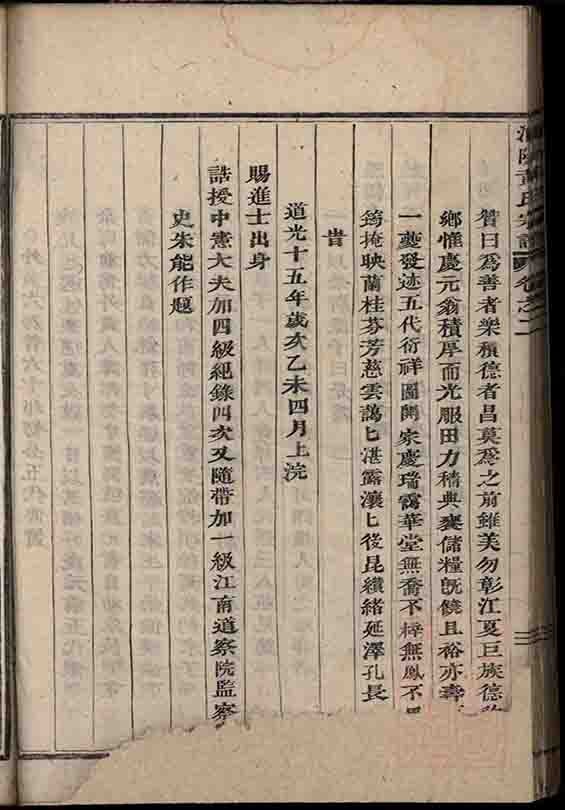 黃氏宗譜 卷之二
三
贊曰爲善者衆積德者昌莫爲之前雖美勿彰江夏巨族德
鄉惟慶元翁積厚而光服田力穡典褒儲糧旣饒且裕亦壽
一夔發迹五代衍祥圖開家慶瑞靄華堂無喬不梓無鳳不
掩映蘭桂芬芳慈雲藹匕湛露瀼匕後昆纘緒延澤孔長
旹
道光十五年歲次乙未四月上浣
賜進士出身
誥授中憲大夫加四級紀錄四次又隨帶加一級江南道察院監察
史朱能作題